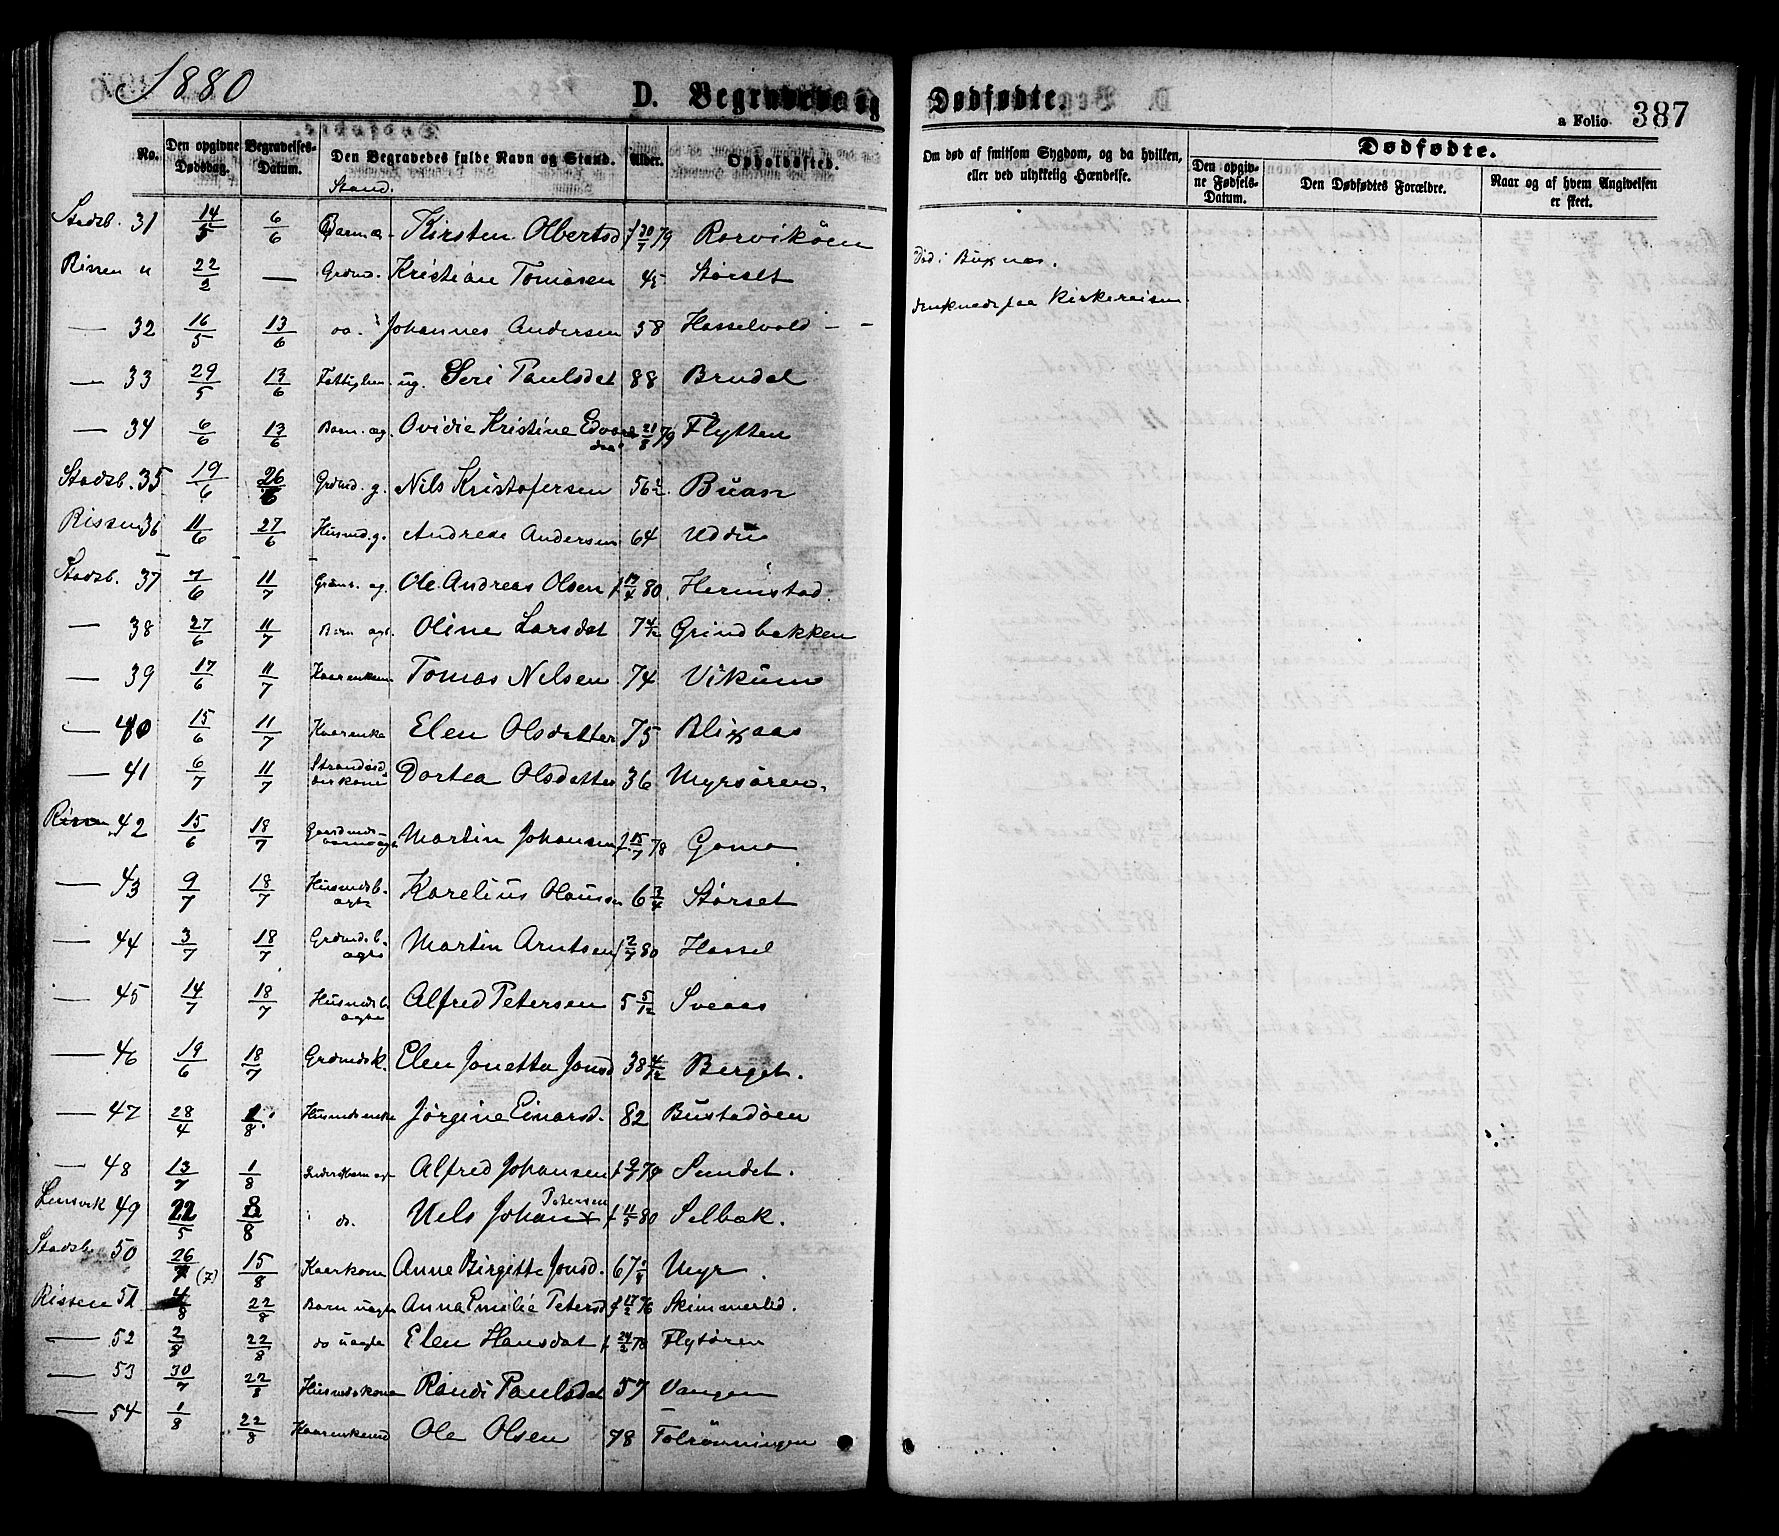 1880
D. Begravede og Dødfødte.
a Folio 387
No. Den opgivne Dødsdag. Begravelses-Datum. Den Begravedes fulde Navn og Stand. Alder. Opholdssted. Om død af smitsom Sygdom, og da hvilken, eller ved ulykkelig Hændelse. Dødfødte.
Den opgivne Fødsels-Datum. Den Dødfødtes Forældre. Naar og af hvem Angivelsen er skeet.
Stand.
Stadsb. 31 14/5 6/6 Barn æ. Kirsten Olbertsd f 30/7 79 Rorvikøen
Rissen 22/2 — Grdmd. Kristian Tomasen 45 Størset Død i Buxnæs.
— 32 16/5 13/6 do. Johannes Andersen 58 Hasselvold - - druknede paa Kirkereisen
— 33 29/5 13/6 Fattiglem ug. Seri Paulsdat 88 Brudal
— 34 6/6 13/6 Barn æg. Ovidie Kristine Edvards dat 21/8 79 Flytten
Stadsb. 35 19/6 26/6 Grdmd. g. Nils Kristofersen 56 Buan
Rissen 36 11/6 27/6 Husmd. g. Andreas Andersen 64 Uddu
Stadsb. 37 7/6 11/7 Ole Andreas Olsen f 17/4 80. Hermstad.
— 38 27/6 11/7 Barn ægt. Oline Larsdat 7 4/12 Grindbakken
— 39 17/6 11/7 Kaarenkem Tomas Nilsen 74 Vikum
— 40 15/6 11/7 Kaarenke Elen Olsdatter 75 Blixaas
— 41 6/7 11/7 Strandsidderkone Dortea Olsdatter 36 Myrsøren.
Rissen 42 15/6 18/7 Gaardmds- barn ægte Martin Johansen f. 15/7 78 Gama
— 43 9/7 18/7 Husmdsb. ægte Karelius Olausen 6 3/4 Størset
— 44 3/7 18/7 Grdmdsb. ægte Martin Arntsen f 2/7 80 Hassel
— 45 14/7 18/7 Husmdsb ægte Alfred Petersen 5 5/12 Sveaas
— 46 19/6 18/7 Grdmdsk. Elen Jonetta Jonsd 38 4/12 Berget.
— 47 28/4 1/8. Husmdsenke Jørgine Einarsd. 82 Bustadøen
— 48 13/7 1/8 Alfred Johansen f 9/7 79 Sundet.
Lensvik 49 22/5 8/8 do. Nels Johan Petersen f 11/5 80 Selbæk.
Stadsb. 50 26/7 (7) 15/8 Kaarkone Anne Birgitte Jonsd. 67 Myr.
Rissen 51 4/8 22/8 Barn uægte Anna Emilie Petersd f 17/2 76 Skimmerled.
— 52 2/8 22/8 do uægte Elen Hansdat f 24/2 78 Flytøren
— 53 30/7 22/8 Husmdskone Randi Paulsdat 57 Vangen
— 54 1/8 22/8 Kaarenkemd Ole Olsen 78 Tolrønningen